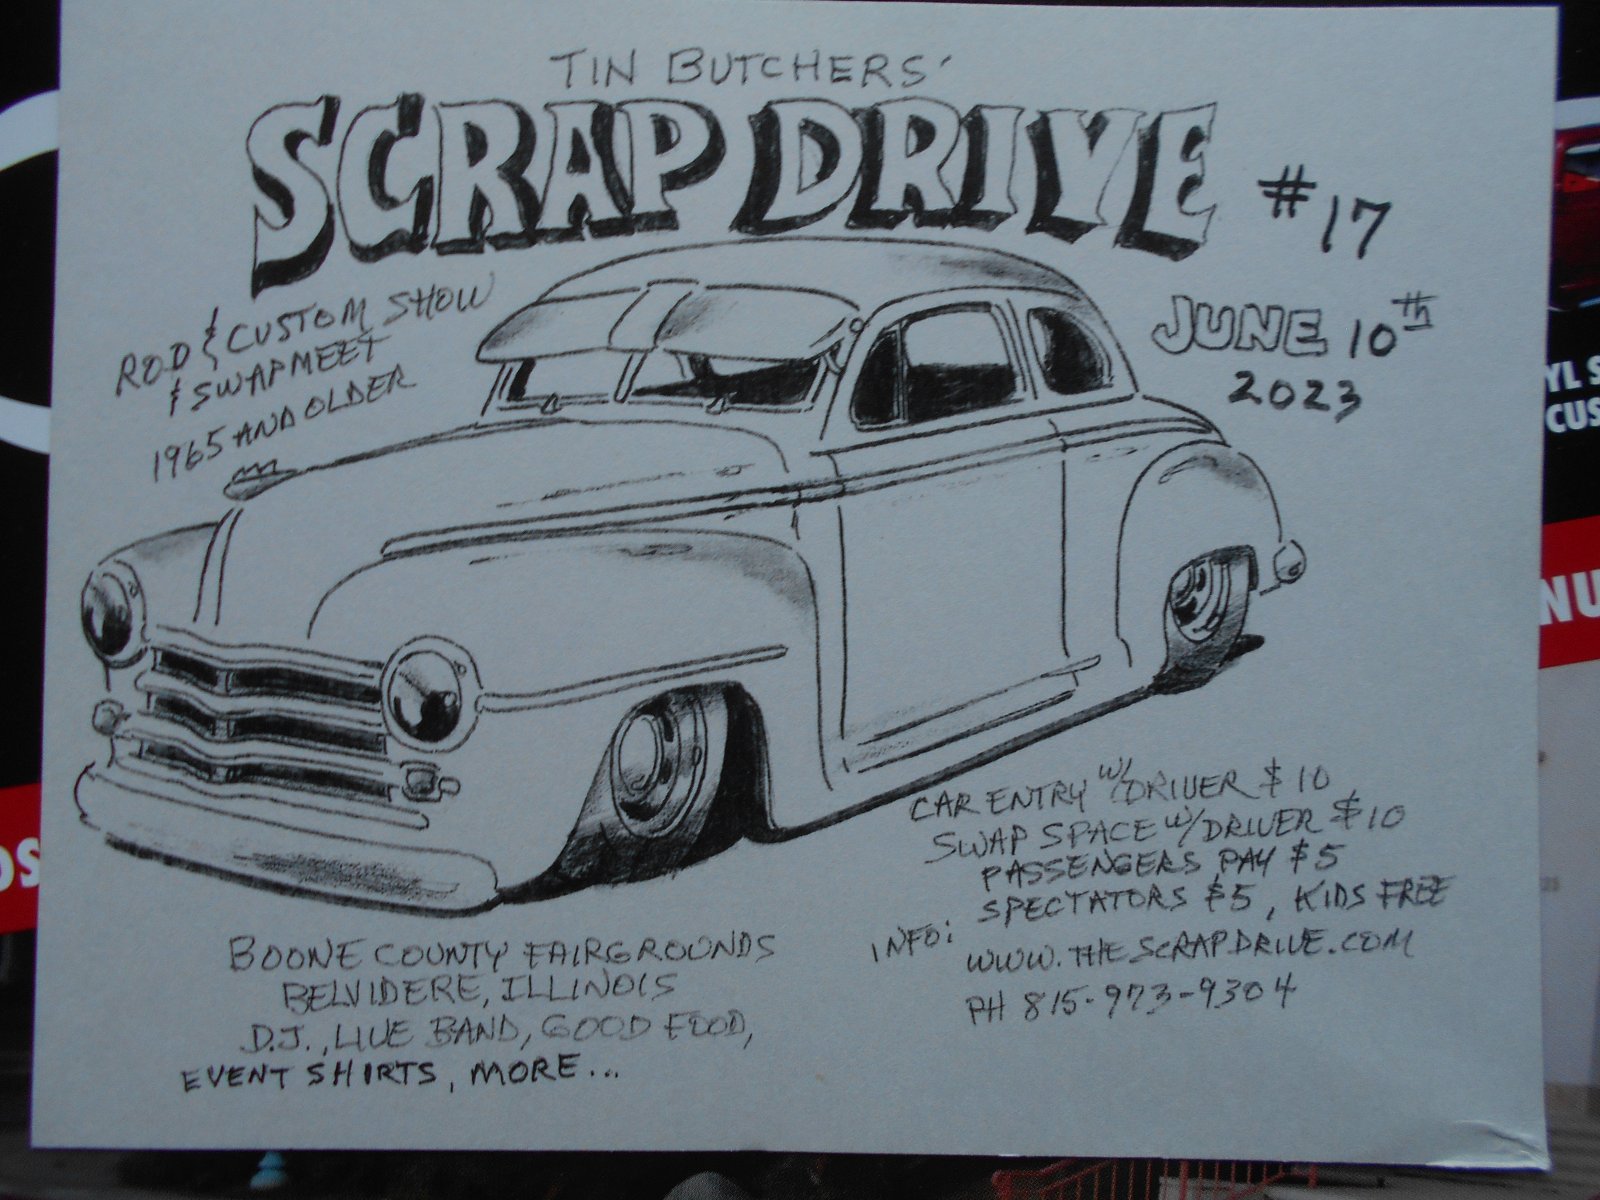 TIN BUTCHERS'
SCRAP DRIVE
#17
ROD & CUSTOM SHOW
& SWAPMEET
1965 AND OLDER
JUNE 10th
2023
CAR ENTRY W/DRIVER $10
SWAP SPACE W/DRIVER $10
PASSENGERS PAY $5
SPECTATORS $5, KIDS FREE
INFO:
WWW.THESCRAPDRIVE.COM
PH 815-973-9304
BOONE COUNTY FAIRGROUNDS
BELVIDERE, ILLINOIS
D.J., LIVE BAND, GOOD FOOD,
EVENT SHIRTS, MORE...
YL S
CUS
NU
OS